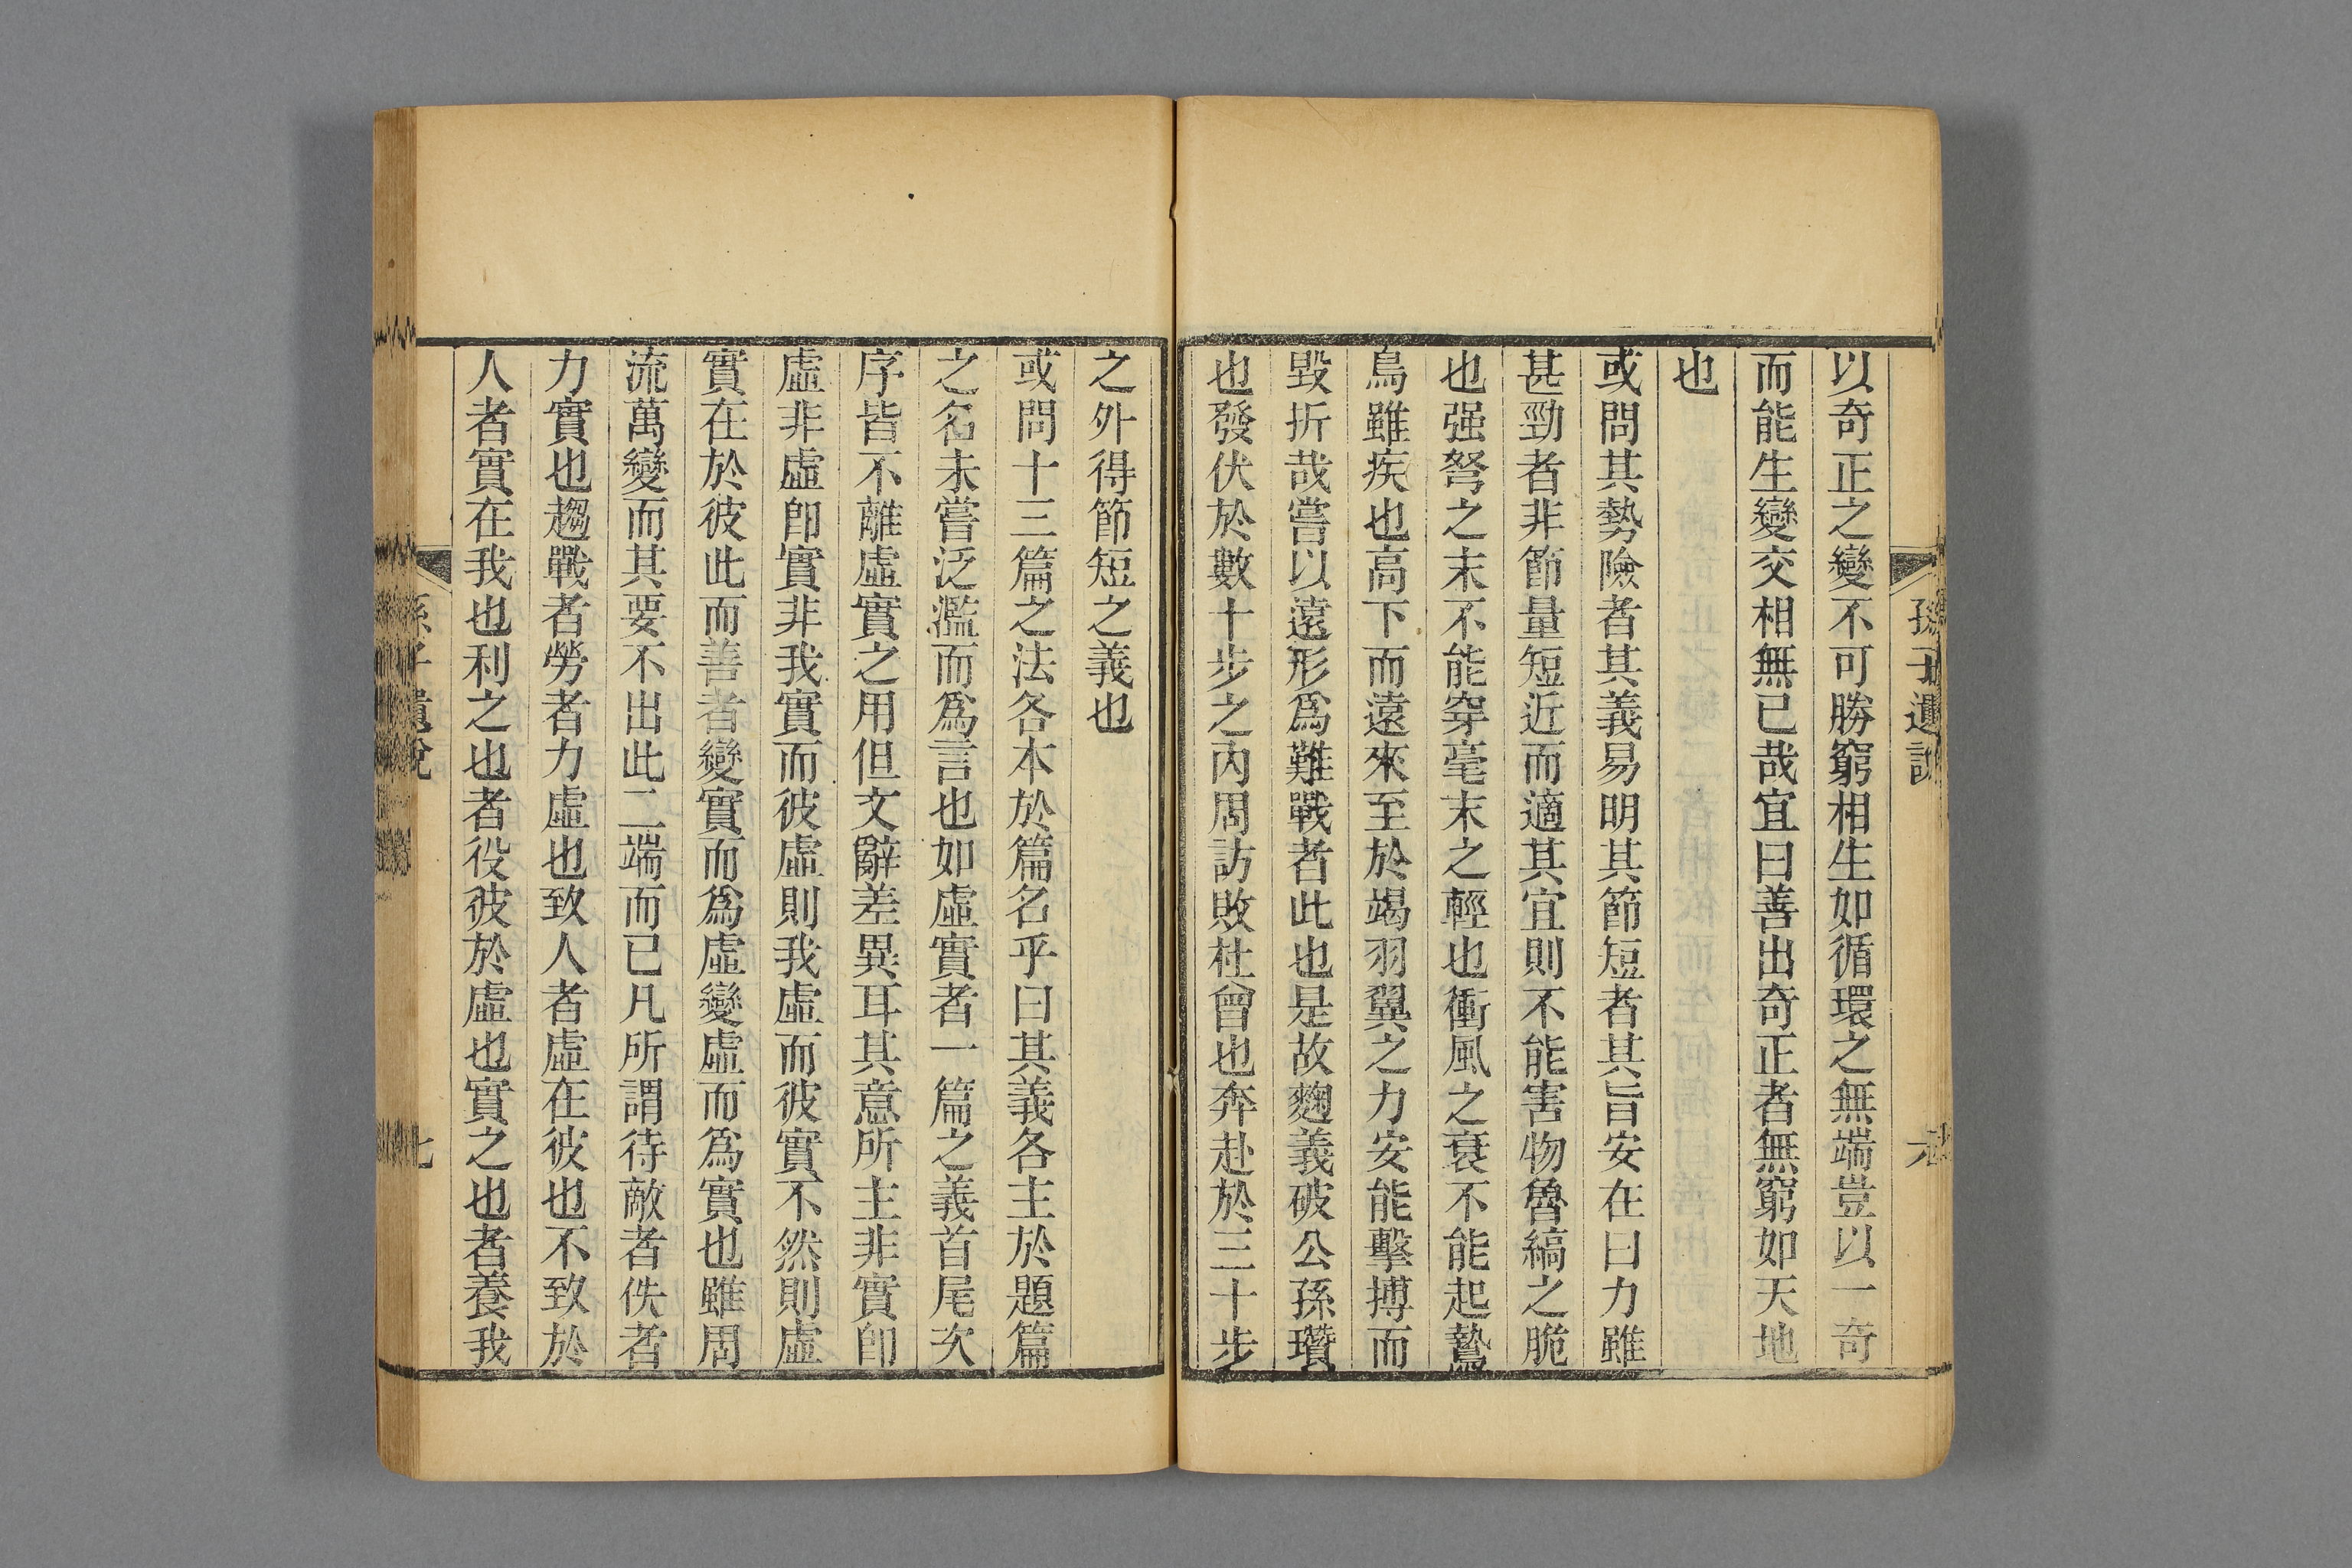 以奇正之變不可勝窮相生如循環之無端豈以一奇
而能生變交相無已哉宜曰善出奇正者無窮如天地
也
或問其勢險者其義易明其節短者其旨安在曰力雖
甚勁者非節量短近而適其宜則不能害物魯縞之脆
也强弩之末不能穿毫末之輕也衝風之衰不能起鷙
鳥雖疾也高下而遠來至於竭羽翼之力安能擊搏而
毀折哉嘗以遠形爲難戰者此也是故麴義破公孫瓚
也發伏於數十步之內周訪敗杜曾也奔赴於三十步
之外得節短之義也
或問十三篇之法各本於篇名乎曰其義各主於題篇
之名未嘗泛濫而爲言也如虛實者一篇之義首尾次
序皆不離虛實之用但文辭差異耳其意所主非實卽
虛非虛卽實非我實而彼虛則我虛而彼實不然則虛
實在於彼此而善者變實而爲虛變虛而爲實也雖周
流萬變而其要不出此二端而已凡所謂待敵者佚者
力實也趨戰者勞者力虛也致人者虛在彼也不致於
人者實在我也利之也者役彼於虛也實之也者養我
孫子遺說